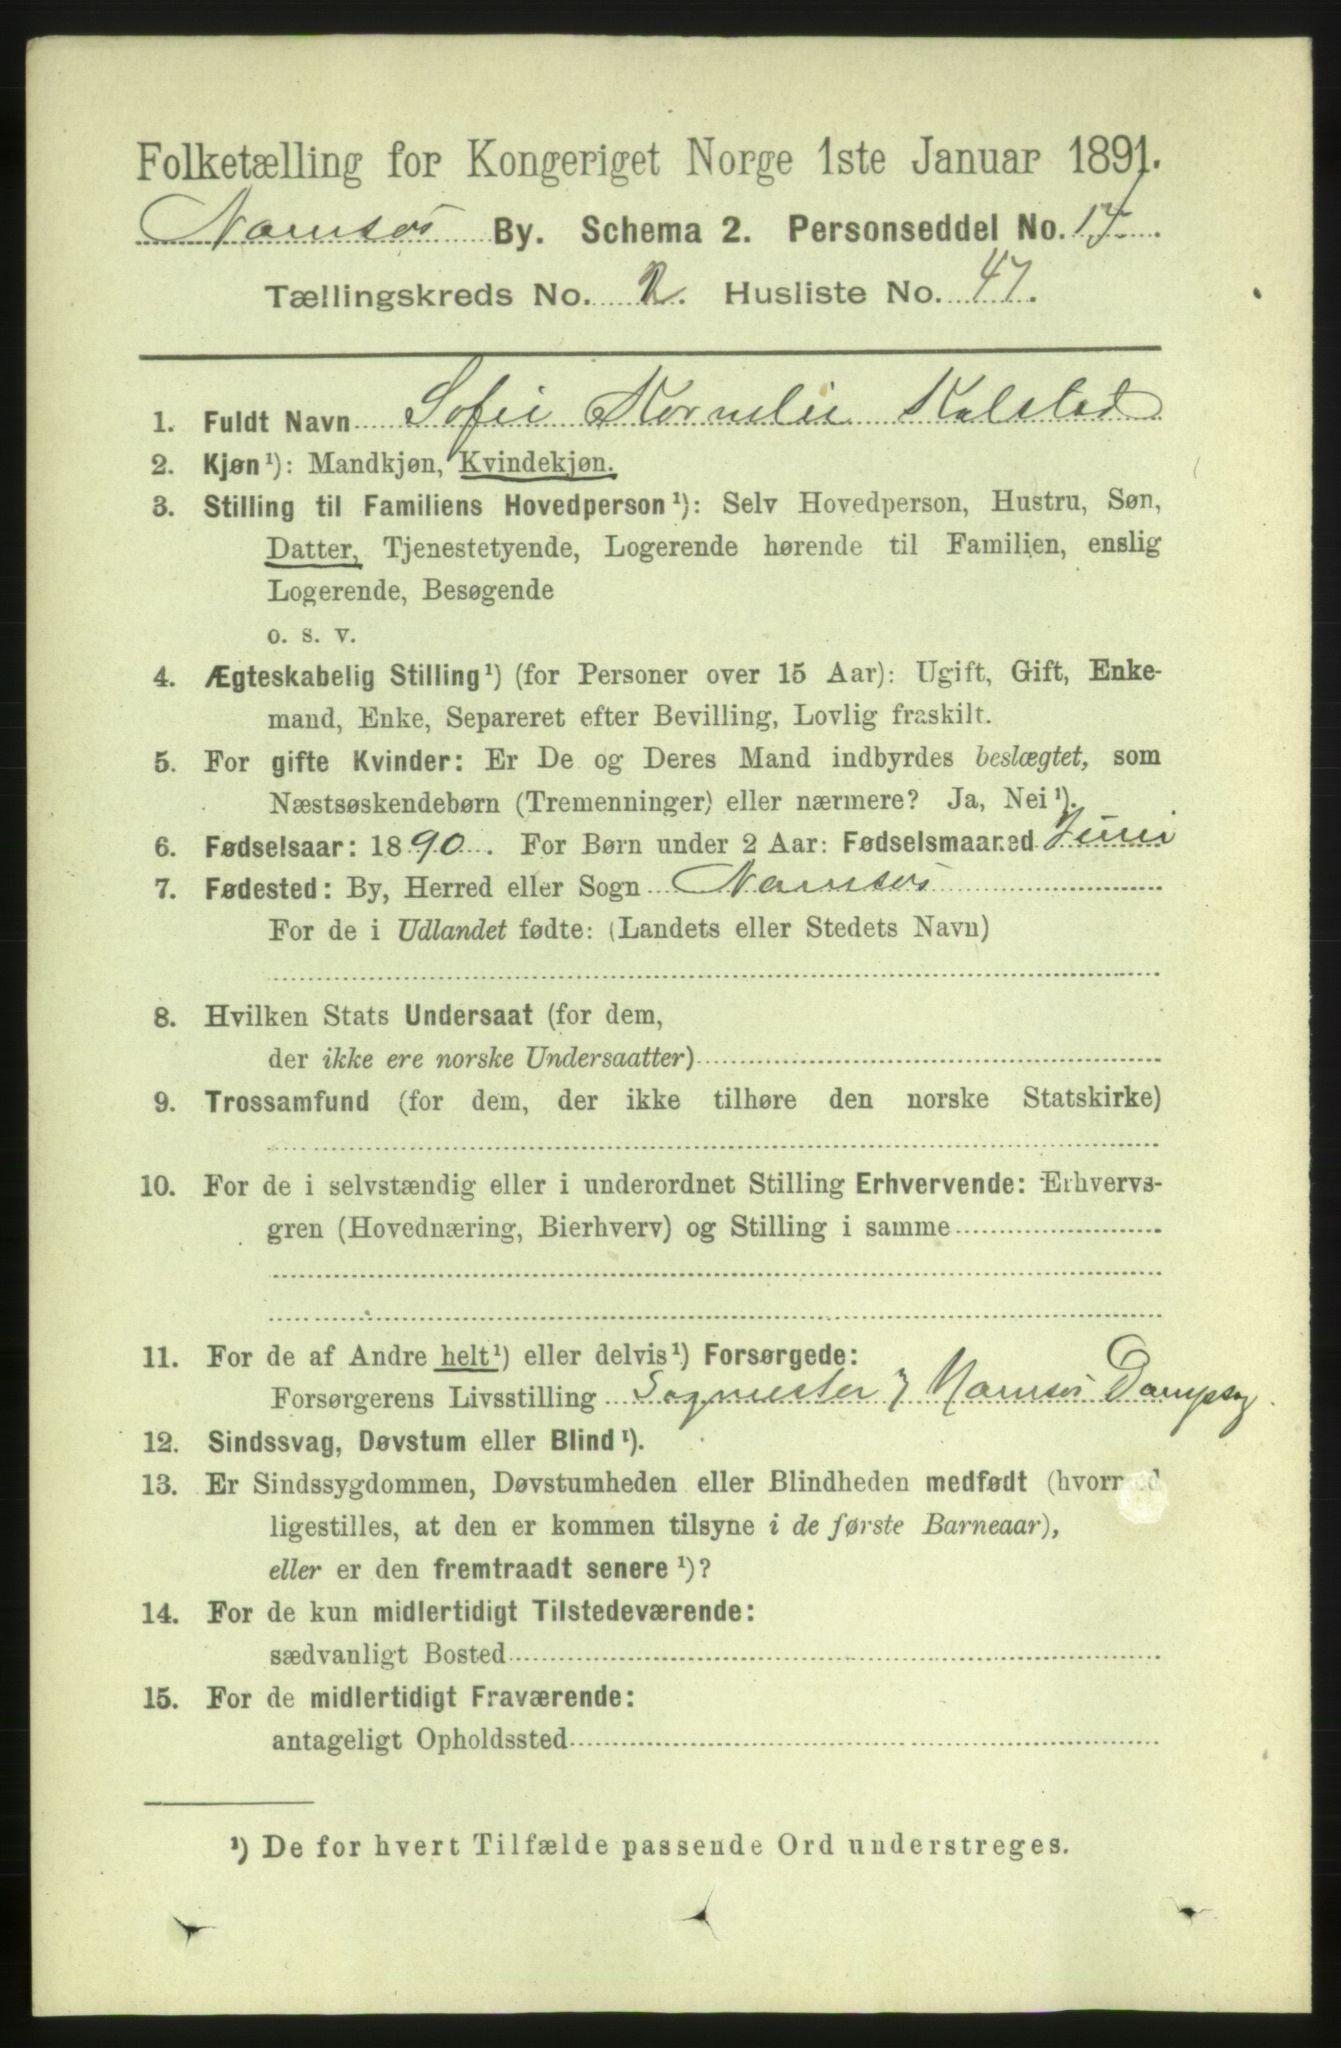 Folketælling for Kongeriget Norge 1ste Januar 1891.
Namsos By. Schema 2. Personseddel No. 17
Tællingskreds No. 2. Husliste No. 47.
1. Fuldt Navn Sofie Kornelie Kalstad
2. Kjøn¹): Mandkjøn, Kvindekjøn.
3. Stilling til Familiens Hovedperson¹): Selv Hovedperson, Hustru, Søn,
Datter, Tjenestetyende, Logerende hørende til Familien, enslig
Logerende, Besøgende
o. s. v.
4. Ægteskabelig Stilling¹) (for Personer over 15 Aar): Ugift, Gift, Enke-
mand, Enke, Separeret efter Bevilling, Lovlig fraskilt.
5. For gifte Kvinder: Er De og Deres Mand indbyrdes beslægtet, som
Næstsøskendebørn (Tremenninger) eller nærmere? Ja, Nei¹).
6. Fødselsaar: 1890. For Børn under 2 Aar: Fødselsmaaned Juni
7. Fødested: By, Herred eller Sogn Namsos
For de i Udlandet fødte: (Landets eller Stedets Navn)
8. Hvilken Stats Undersaat (for dem,
der ikke ere norske Undersaatter)
9. Trossamfund (for dem, der ikke tilhøre den norske Statskirke)
10. For de i selvstændig eller i underordnet Stilling Erhvervende: Erhvervs-
gren (Hovednæring, Bierhverv) og Stilling i samme
11. For de af Andre helt¹) eller delvis¹) Forsørgede:
Forsørgerens Livsstilling Sagmester Namsos Dampsag.
12. Sindssvag, Døvstum eller Blind¹).
13. Er Sindssygdommen, Døvstumheden eller Blindheden medfødt (hvormed
ligestilles, at den er kommen tilsyne i de første Barneaar),
eller er den fremtraadt senere¹)?
14. For de kun midlertidigt Tilstedeværende:
sædvanligt Bosted
15. For de midlertidigt Fraværende:
antageligt Opholdssted
¹) De for hvert Tilfælde passende Ord understreges.